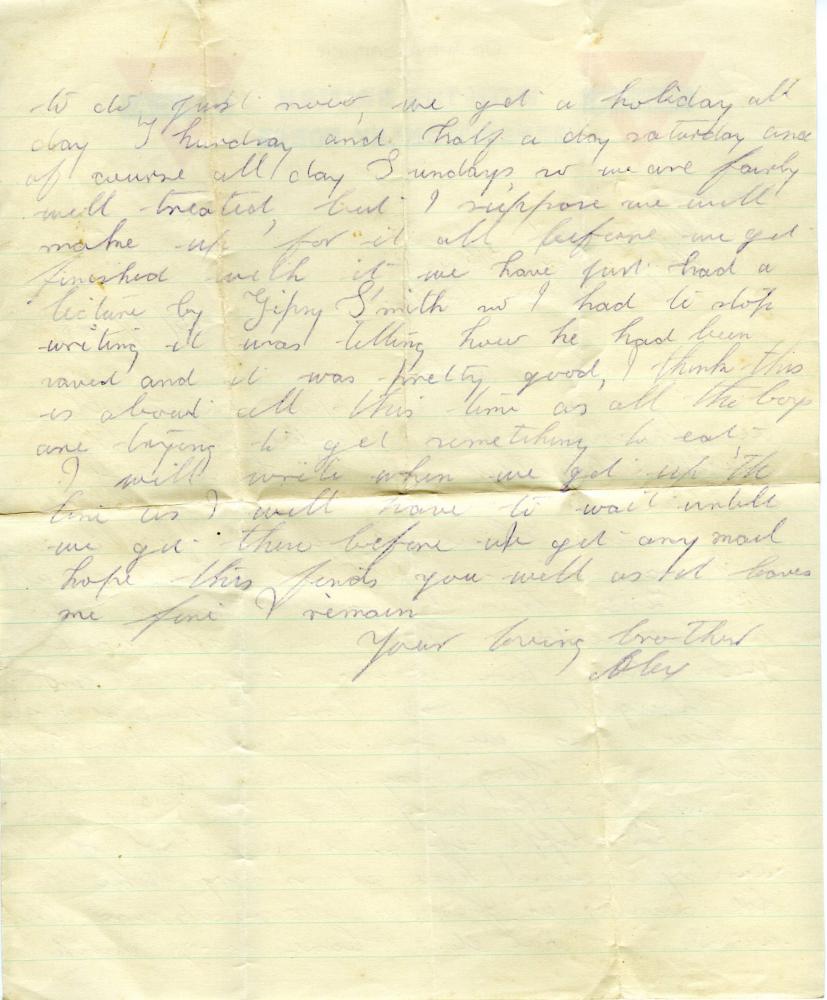 to do just now, we get a holiday all
day Thursday and half a day saturday and
of course all day Sundays so we are fairly
well treated, but I suppose we will
make up for it all before we get
finished with it we have just had a
lecture by Gipsy Smith so I had to stop
writing it was telling how he had been
saved and it was pretty good, I think this
is about all this time as all the boys
are trying to get something to eat
I will write when we get up the
line as I will have to wait untill
we get there before we get any mail
hope this finds you well as it leaves
me fine I remain
Your loving brother
Alex